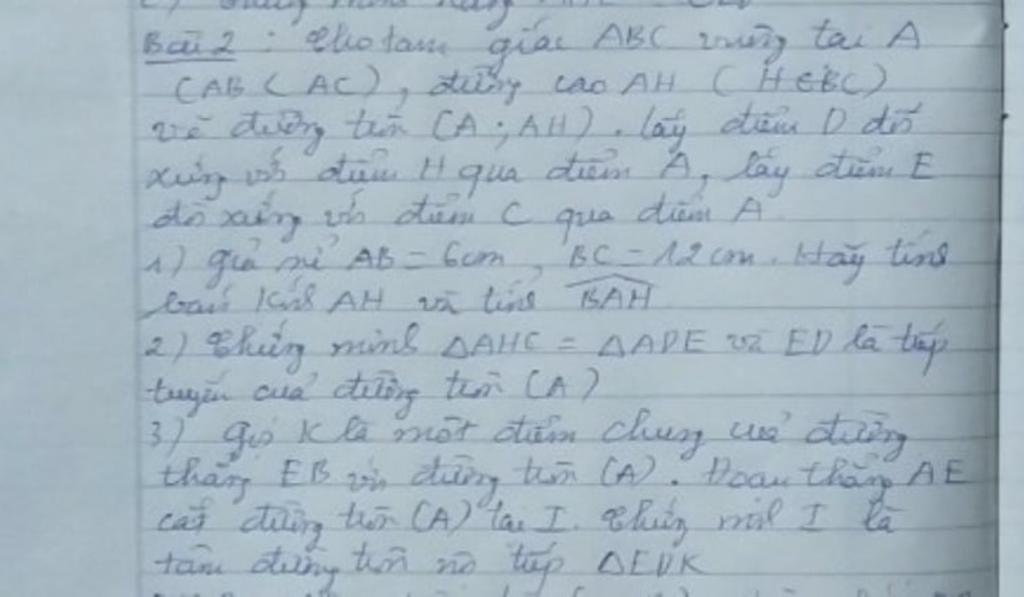 Bài 2 : Cho tam giác ABC vuông tại A
(AB < AC), đường cao AH ( H ∈ BC)
vẽ đường tròn (A ; AH). lấy điểm D đối
xứng với điểm H qua điểm A, lấy điểm E
đối xứng với điểm C qua điểm A
1) giả sử AB = 6cm, BC = 12cm. Hãy tính
bán kính AH và tính \widehat{BAH}
2) Chứng minh ΔAHC = ΔADE và ED là tiếp
tuyến của đường tròn (A)
3) gọi K là một điểm chung của đường
thẳng EB với đường tròn (A). Đoạn thẳng AE
cắt đường tròn (A) tại I. Chứng minh I là
tâm đường tròn nội tiếp ΔEDK